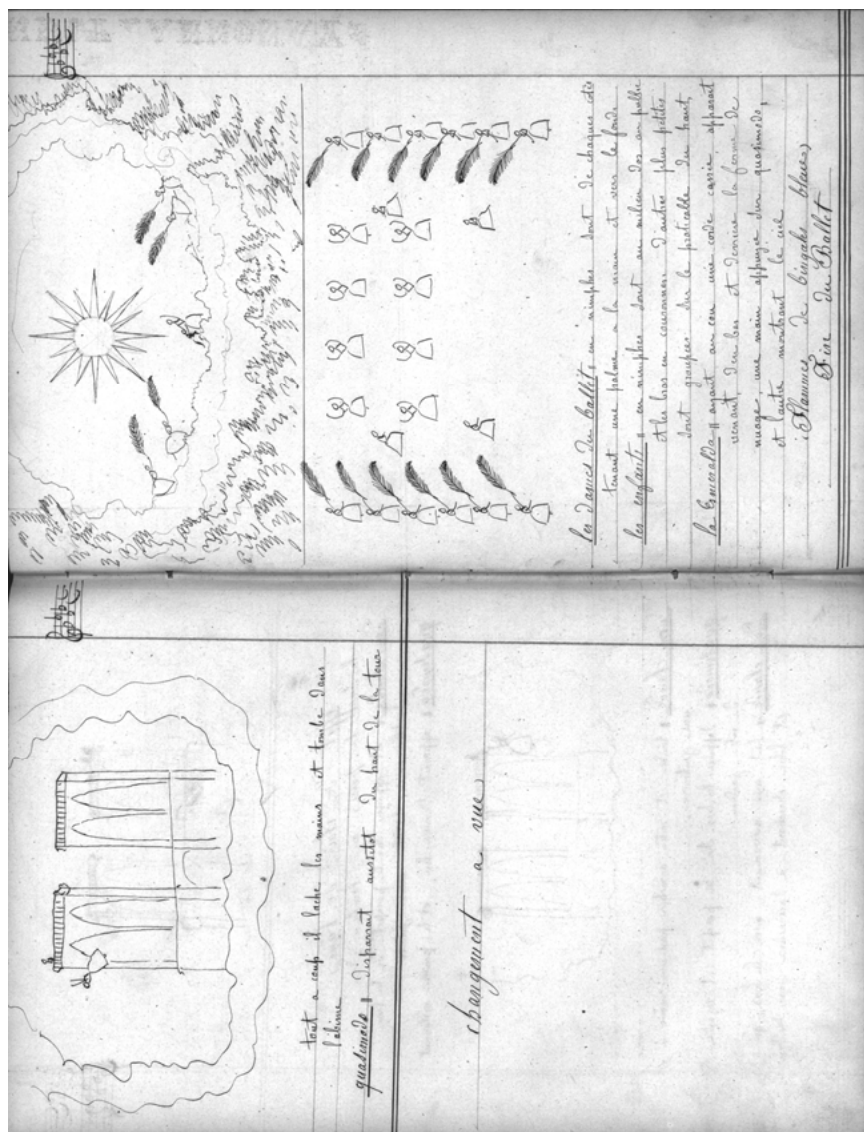 tout a coup il lache les mains et tombe dans
l'abime
quasimodo // disparrait aussitot du haut de la tour
changement a vue
les dames du ballet, en nimphes sont de chaques cotés
tenant une palme a la main et vers le fonds
les enfants // en nimphes sont au milieu dos au public
et les bras en couronnes. d'autres plus petites
sont groupées sur le praticable du haut,
la Esmeralda // ayant au cou une corde cassée, apparait
venant d'en bas et derriere la ferme de
nuage, une main appuyée sur quasimodo,
et l'autre montrant le ciel
(Flammes de bengale bleues)
Fin du Ballet